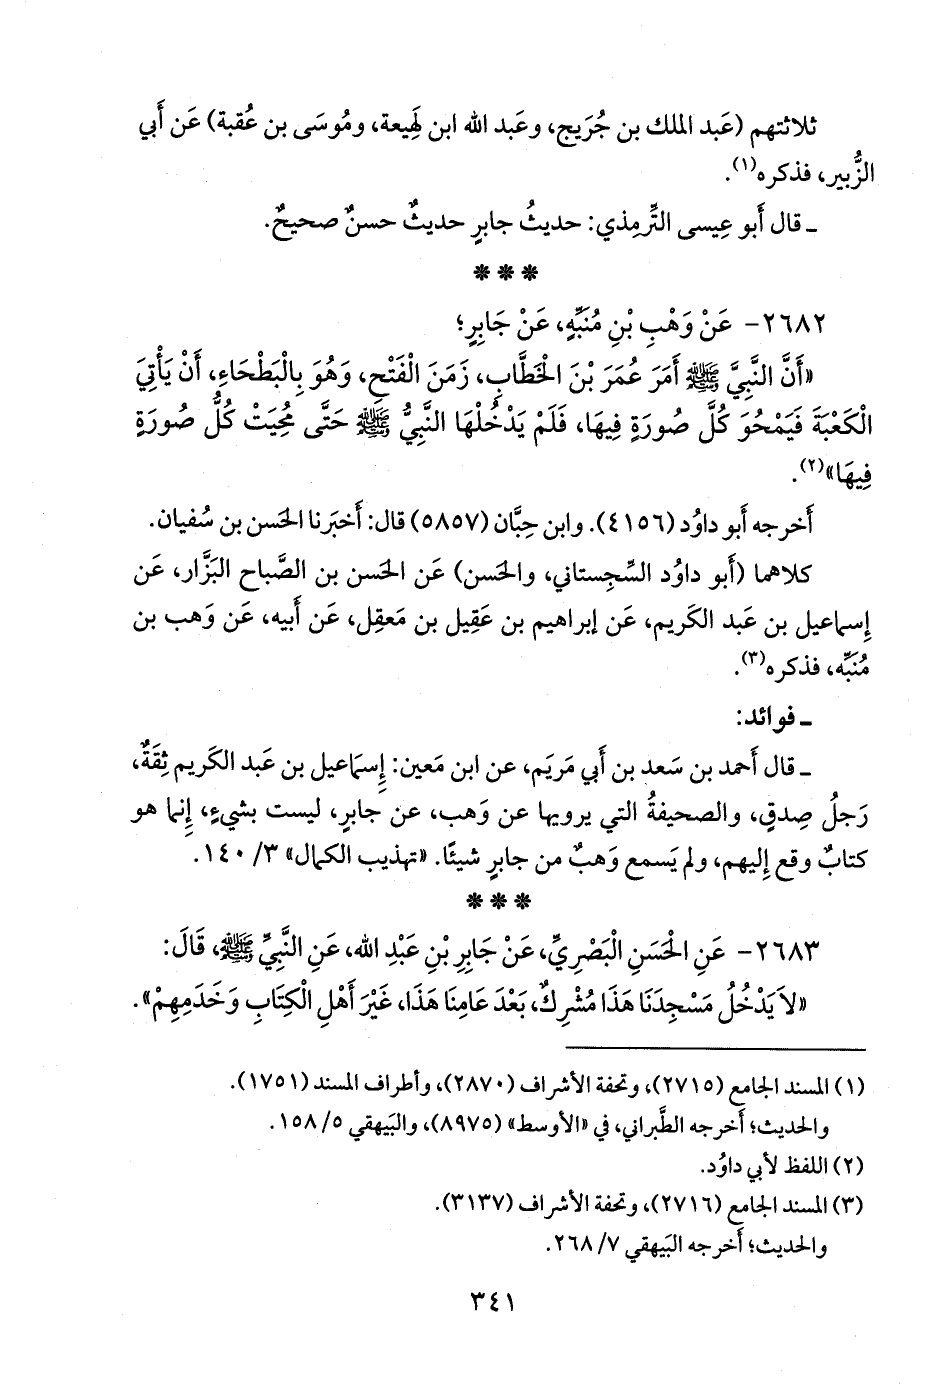 ثلاثتهم (عَبد الملك بن جُرَيج، وعَبد الله ابن لَهِيعة، ومُوسَى بن عُقبة) عَن أَبي
الزُّبير، فذكره(١).
ـ قال أَبو عِيسى التِّرمِذي: حديثُ جابرٍ حديثٌ حسنٌ صحيحٌ.
* * *
٢٦٨٢- عَنْ وَهْبِ بْنِ مُنَبِّهٍ، عَنْ جَابِرٍ؛
«أَنَّ النَّبِيَّ ﷺ أَمَرَ عُمَرَ بْنَ الْخَطَّابِ، زَمَنَ الْفَتْحِ، وَهُوَ بِالْبَطْحَاءِ، أَنْ يَأْتِيَ
الْكَعْبَةَ فَيَمْحُوَ كُلَّ صُورَةٍ فِيهَا، فَلَمْ يَدْخُلْهَا النَّبِيُّ ﷺ حَتَّى مُحِيَتْ كُلُّ صُورَةٍ
فِيهَا»(٢).
أَخرجه أَبو داوُد (٤١٥٦). وابن حِبَّان (٥٨٥٧) قال: أَخبَرنا الحَسن بن سُفيان.
كلاهما (أَبو داوُد السِّجِستاني، والحَسن) عَن الحَسن بن الصَّباح البَزَّار، عَن
إِسماعيل بن عَبد الكَريم، عَن إبراهيم بن عَقِيل بن مَعقِل، عَن أَبيه، عَن وَهب بن
مُنَبِّه، فذكره(٣).
ـ فوائد:
ـ قال أَحمد بن سَعد بن أَبي مَريَم، عن ابن مَعين: إِسماعيل بن عَبد الكَريم ثِقَةٌ،
رَجلُ صِدقٍ، والصحيفةُ التي يرويها عن وَهب، عن جابرٍ، ليست بشيءٍ، إِنما هو
كتابٌ وقع إِليهم، ولم يَسمع وَهبٌ من جابرٍ شيئًا. «تهذيب الكمال» ٣/ ١٤٠.
* * *
٢٦٨٣- عَنِ الْحَسَنِ الْبَصْرِيِّ، عَنْ جَابِرِ بْنِ عَبْدِ الله، عَنِ النَّبِيِّ ﷺ، قَالَ:
«لاَ يَدْخُلُ مَسْجِدَنَا هَذَا مُشْرِكٌ، بَعْدَ عَامِنَا هَذَا، غَيْرَ أَهْلِ الْكِتَابِ وَخَدَمِهِمْ».
(١) المسند الجامع (٢٧١٥)، وتحفة الأشراف (٢٨٧٠)، وأطراف المسند (١٧٥١).
والحديث؛ أَخرجه الطَّبراني، في «الأوسط» (٨٩٧٥)، والبَيهقي ٥/ ١٥٨.
(٢) اللفظ لأبي داوُد.
(٣) المسند الجامع (٢٧١٦)، وتحفة الأشراف (٣١٣٧).
والحديث؛ أَخرجه البَيهقي ٧/ ٢٦٨.
٣٤١